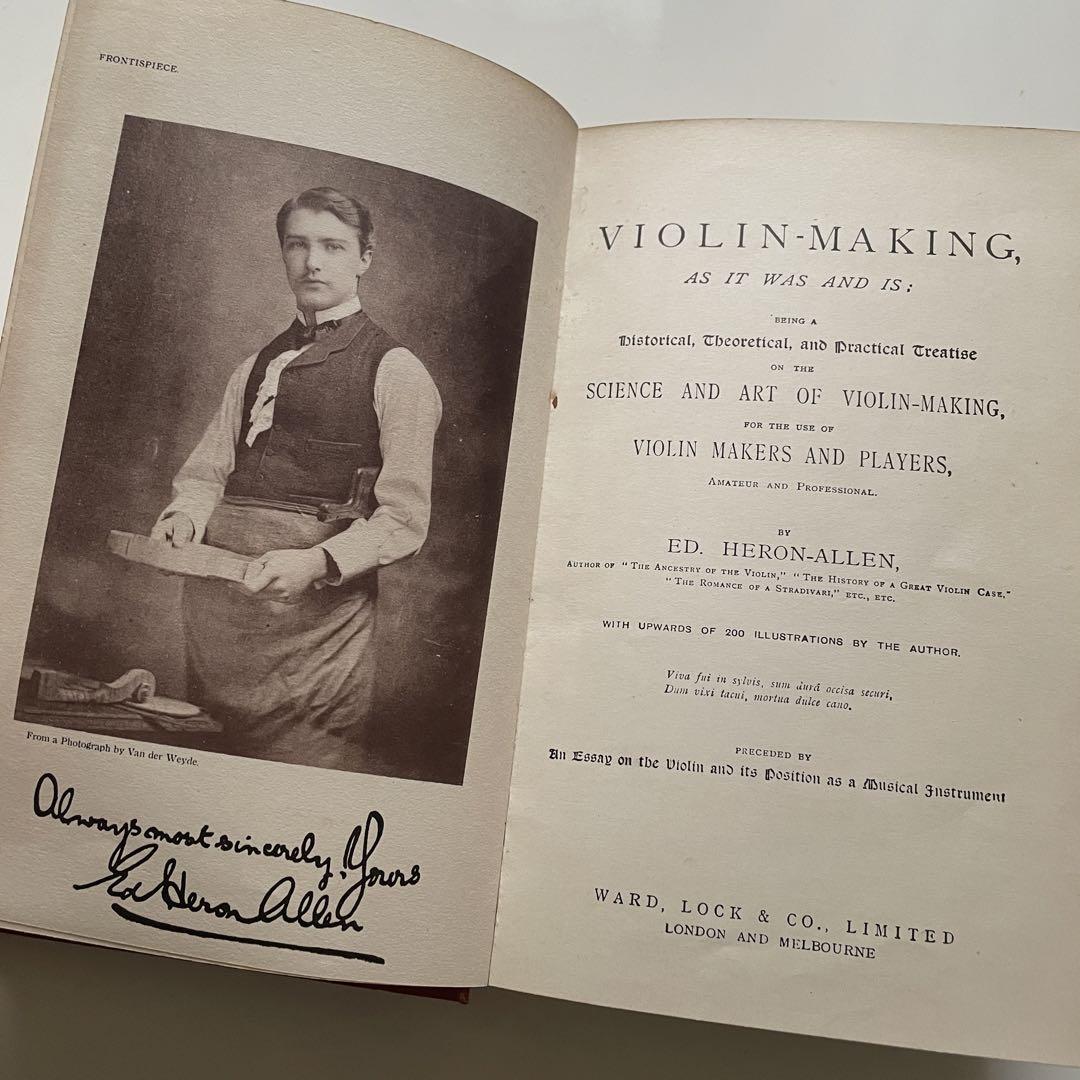 FRONTISPIECE.
From a Photograph by Van der Weyde.
Always most sincerely Yours
Ed Heron Allen
VIOLIN-MAKING,
AS IT WAS AND IS:
BEING A
Historical, Theoretical, and Practical Treatise
ON THE
SCIENCE AND ART OF VIOLIN-MAKING,
FOR THE USE OF
VIOLIN MAKERS AND PLAYERS,
AMATEUR AND PROFESSIONAL.
BY
ED. HERON-ALLEN,
AUTHOR OF "THE ANCESTRY OF THE VIOLIN," "THE HISTORY OF A GREAT VIOLIN CASE,"
"THE ROMANCE OF A STRADIVARI," ETC., ETC.
WITH UPWARDS OF 200 ILLUSTRATIONS BY THE AUTHOR.
Viva fui in sylvis, sum durâ occisa securi,
Dum vixi tacui, mortua dulce cano.
PRECEDED BY
An Essay on the Violin and its Position as a Musical Instrument
WARD, LOCK & CO., LIMITED
LONDON AND MELBOURNE